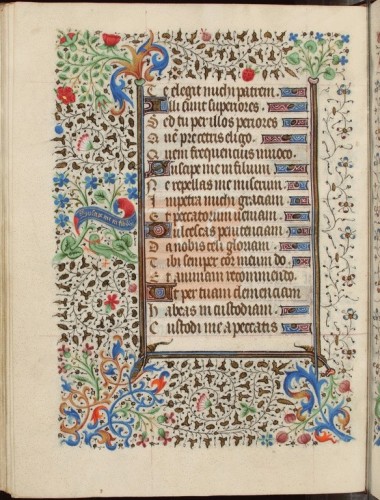 Te elegit michi patrem.
Alii sunt superiores.
Sed tu per illos periores
Aue pre ceteris eligo.
Quem frequencius inuoco.
Suscipe me in filium
Ne repellas me miserum.
Impetra michi graciam
Et peccatorum ueniam.
penitenciam.
Da nobis celi gloriam.
Tibi semper cor meum do.
Et animam recommendo.
Et per tuam clemenciam
Habeas in custodiam.
Custodi me a peccatis